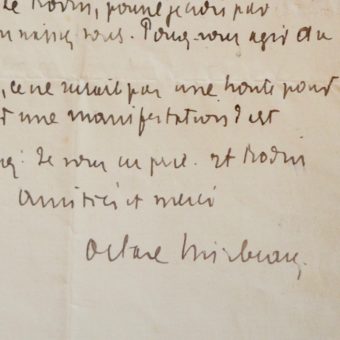 de Rodin, pour
vous. Pouvez-vous agir au
, ce ne serait pas une honte pour
une manifestation d'est
Je vous en prie. et Rodin
Amitiés et merci
Octave Mirbeau.